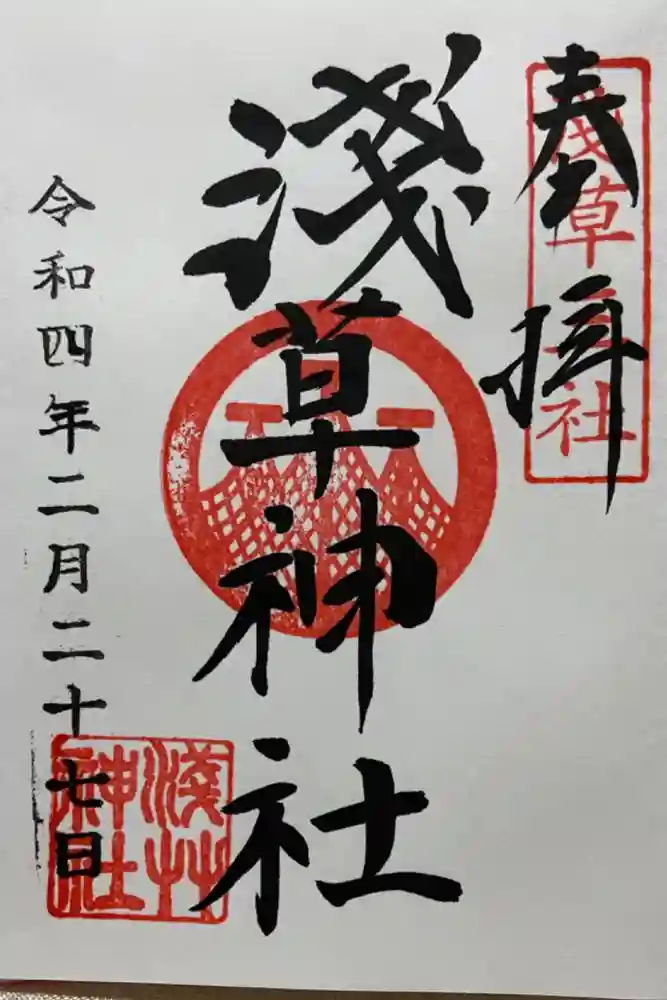 奉拝
浅草三社
淺草神社
令和四年二月二十七日
淺草神社